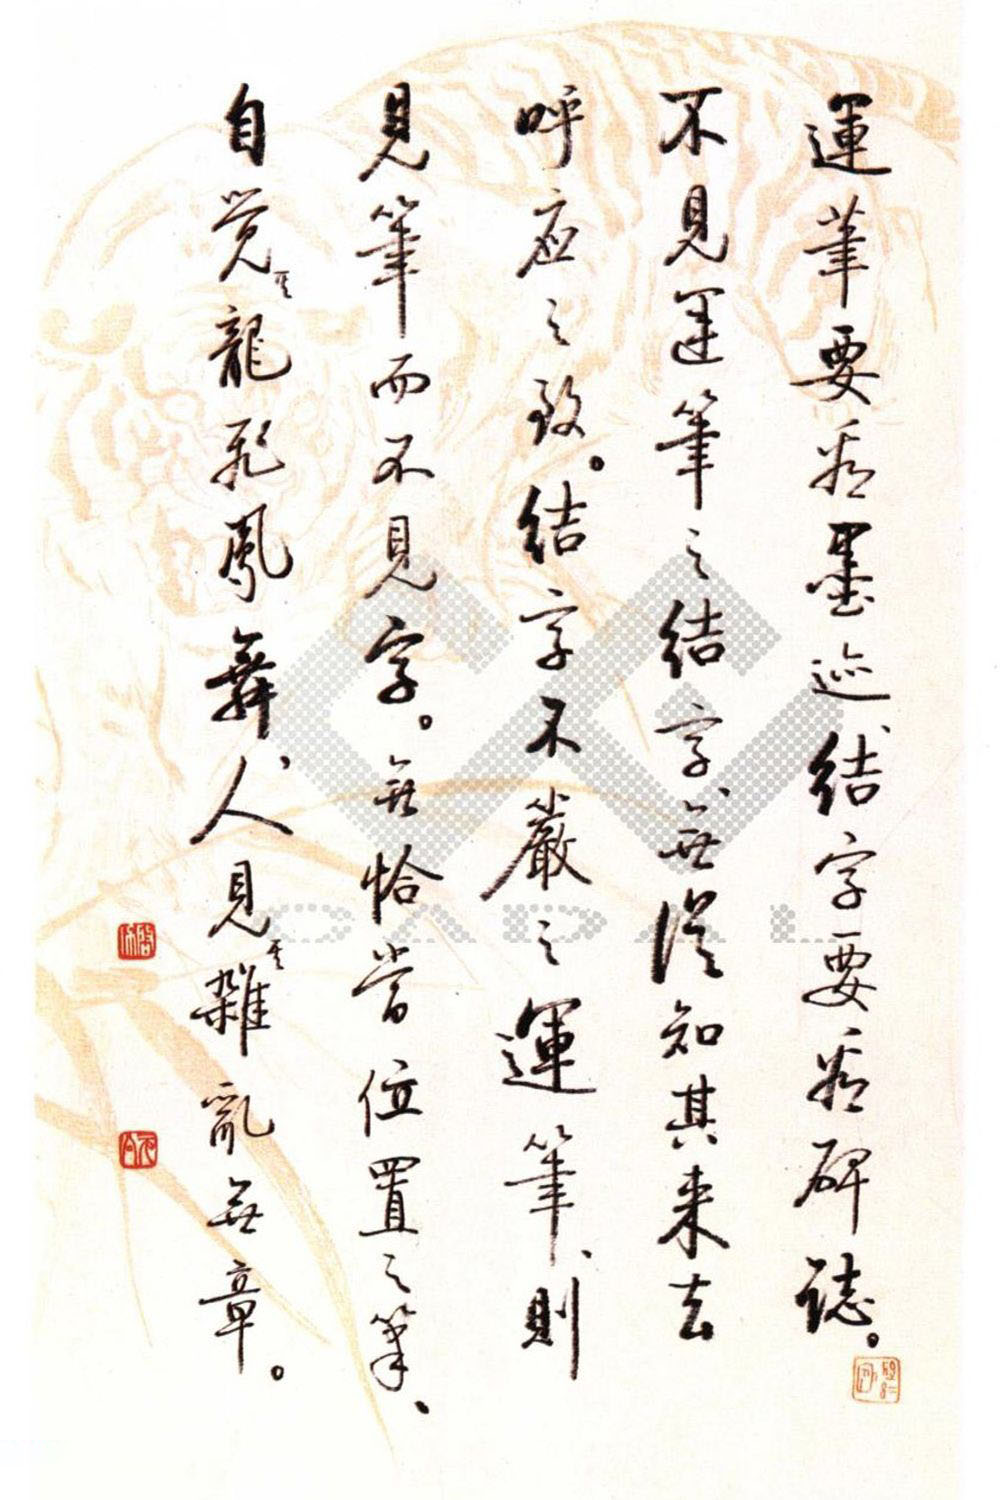 運筆要看墨迹、結字要看碑誌。
不見運筆之結字、無從知其来去
呼应之致。結字不嚴之運筆、則
見筆而不見字。無恰當位置之筆、
自覚其龍飛鳳舞、人見其雜亂無章。
CADAL